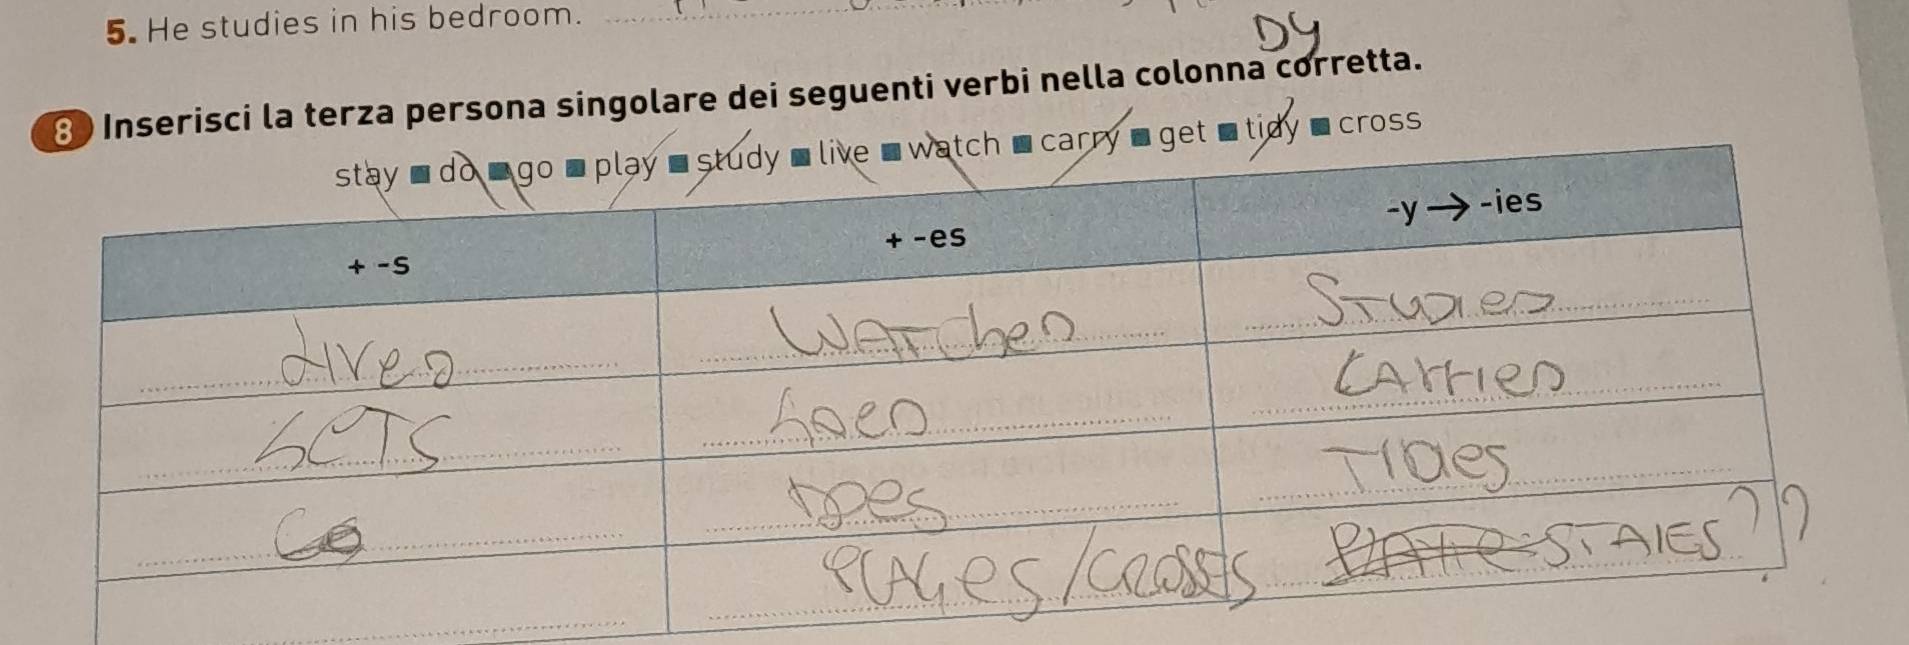 5. He studies in his bedroom.
DY
8 Inserisci la terza persona singolare dei seguenti verbi nella colonna corretta.
stay ■ do ■ go ■ play ■ study ■ live ■ watch ■ carry ■ get ■ tidy ■ cross
+ -s + -es -y → -ies
Lives WATches STUDIES
GETS Goes CArries
Does TIDIes
PLAYes/CROSSES STAIES??